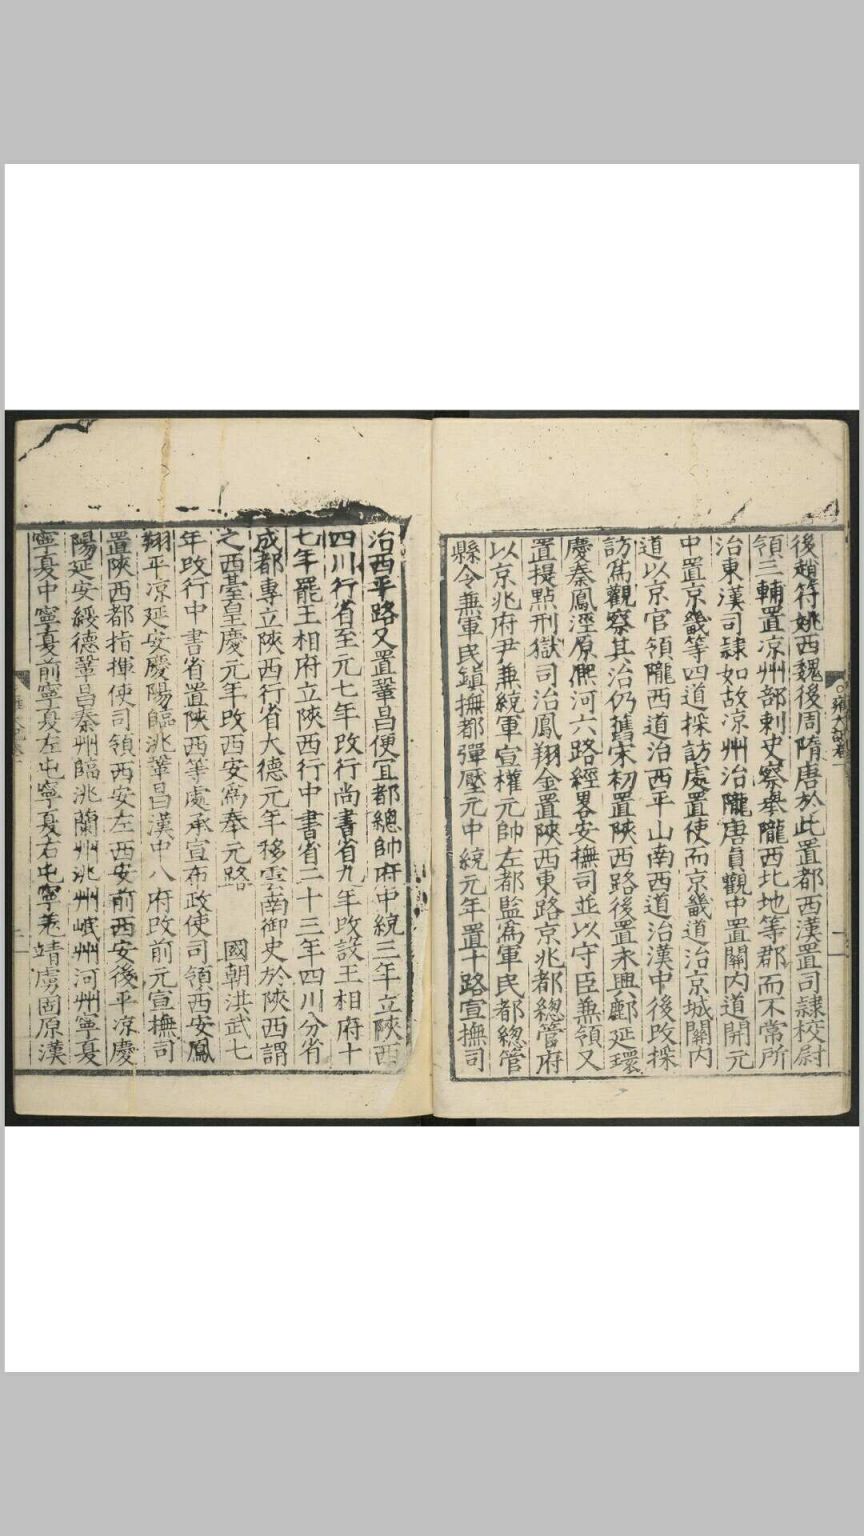 後趙符姚西魏後周隋唐於此置都西漢置司隷校尉
領三輔置凉州部刺史察舉隴西北地等郡而不常所
治東漢司隷如故凉州治隴唐貞觀中置關內道開元
中置京畿等四道採訪處置使而京畿道治京城關內
道以京官領隴西道治西平山南西道治漢中後改採
訪爲觀察其治仍舊宋初置陝西路後置永興鄜延環
慶秦鳳涇原熈河六路經畧安撫司並以守臣兼領又
置提點刑獄司治鳳翔金置陝西東路京兆都總管府
以京兆府尹兼統軍宣權元帥左都監爲軍民都總管
縣令兼軍民鎮撫都彈壓元中統元年置十路宣撫司
治西平路又置鞏昌便冝都總帥府中統三年立陝西
四川行省至元七年改行尚書省九年改設王相府十
七年罷王相府立陝西行中書省二十三年四川分省
成都專立陝西行省大德元年移雲南御史於陝西謂
之西臺皇慶元年改西安爲奉元路　國朝洪武七
年改行中書省置陝西等處承宣布政使司領西安鳳
翔平凉延安慶陽臨洮鞏昌漢中八府改前元宣撫司
置陝西都指揮使司領西安左西安前西安後平凉慶
陽延安綏德鞏昌秦州臨洮蘭州洮州岷州河州寧夏
寧夏中寧夏前寧夏左屯寧夏右屯寧羌靖虜固原漢